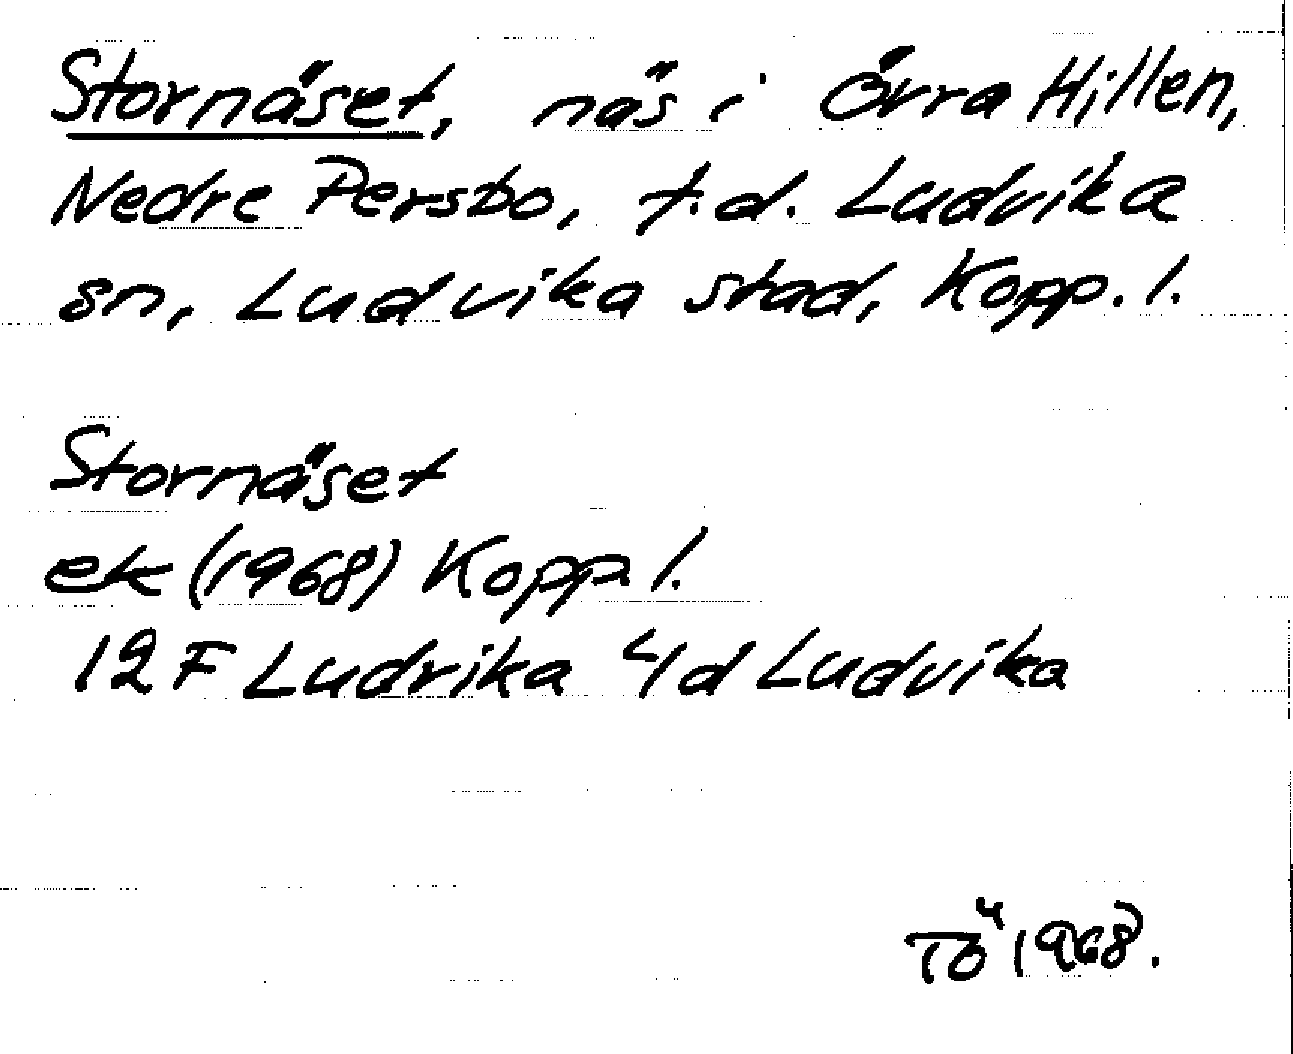 Stornäset, näs i Övra Hillen,
Nedre Persbo, f.d. Ludvika
sn, Ludvika stad, Kopp. l.
Stornäset
ek (1968) Kopp. l.
12 F Ludvika 4d Ludvika
TÖ 1968.